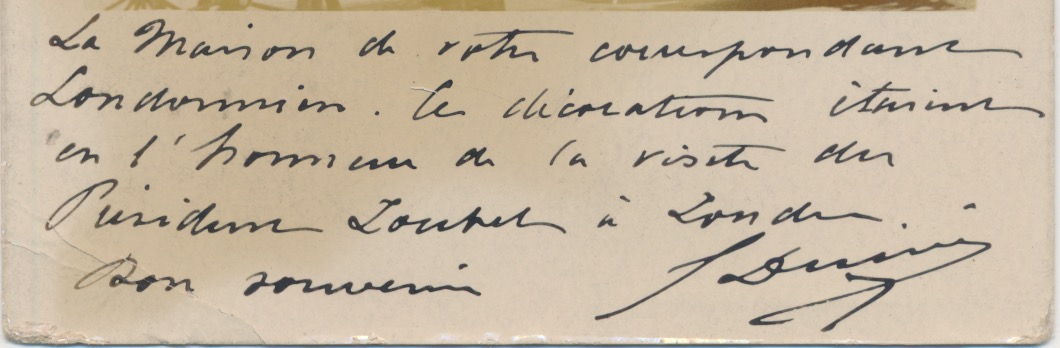 La Maison de votre correspondant
Londonnien. les décorations étaient
en l'honneur de la visite du
Président Loubet à Londres.
Bon souvenir